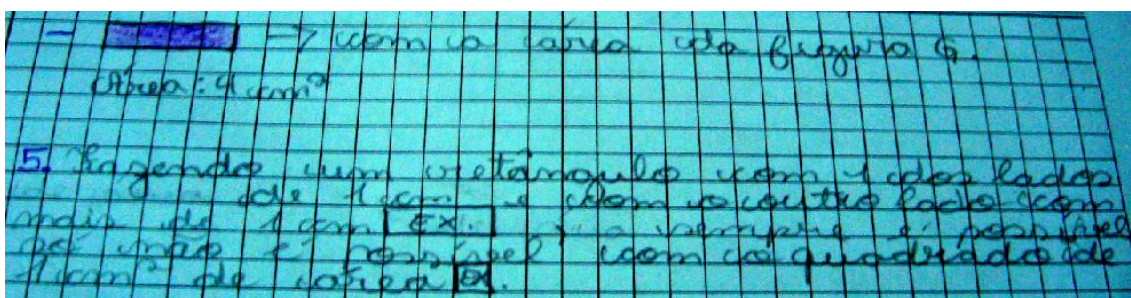 - → com a área da figura G.
Área: 4 cm²
5. Fazendo um retângulo com 1 dos lados
de 1 cm e com o outro lado com
mais de 1 cm Ex. sempre é possível
só não é possível com o quadrado de
1 cm² de área